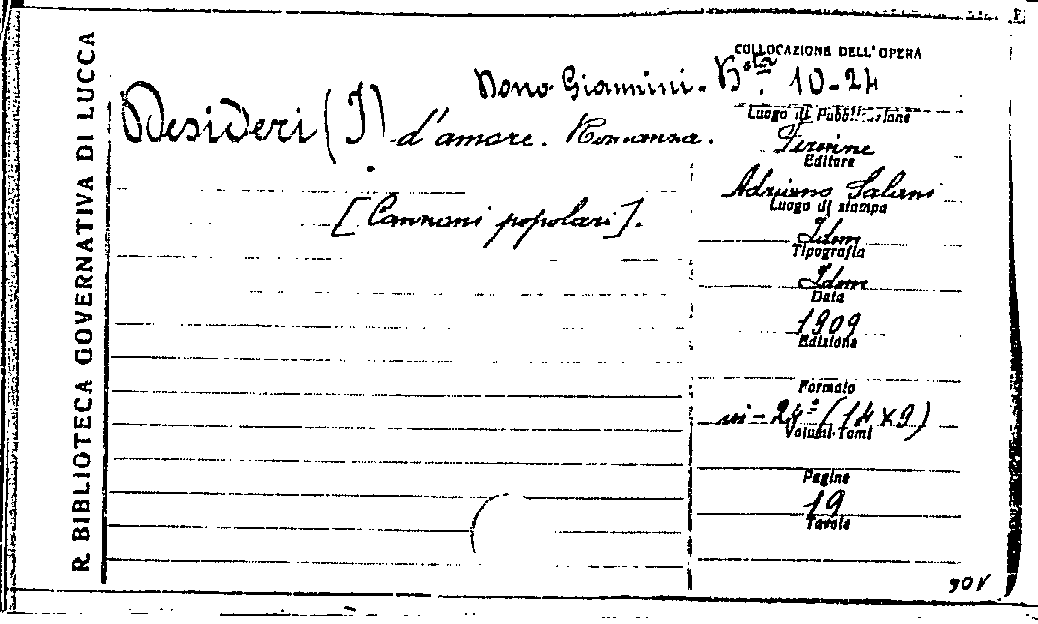 R. BIBLIOTECA GOVERNATIVA DI LUCCA
COLLOCAZIONE DELL'OPERA
Dono Giannini - Bsta. 10-24
Desideri (I) d'amore. Romanza.
[Canzoni popolari].
Luogo di Pubblicazione
Firenze
Editore
Adriano Salani
Luogo di stampa
Idem
Tipografia
Idem
Data
1909
Edizione
Formato
in-24° (14 x 9)
Volumi-Tomi
Pagine
19
Tavole